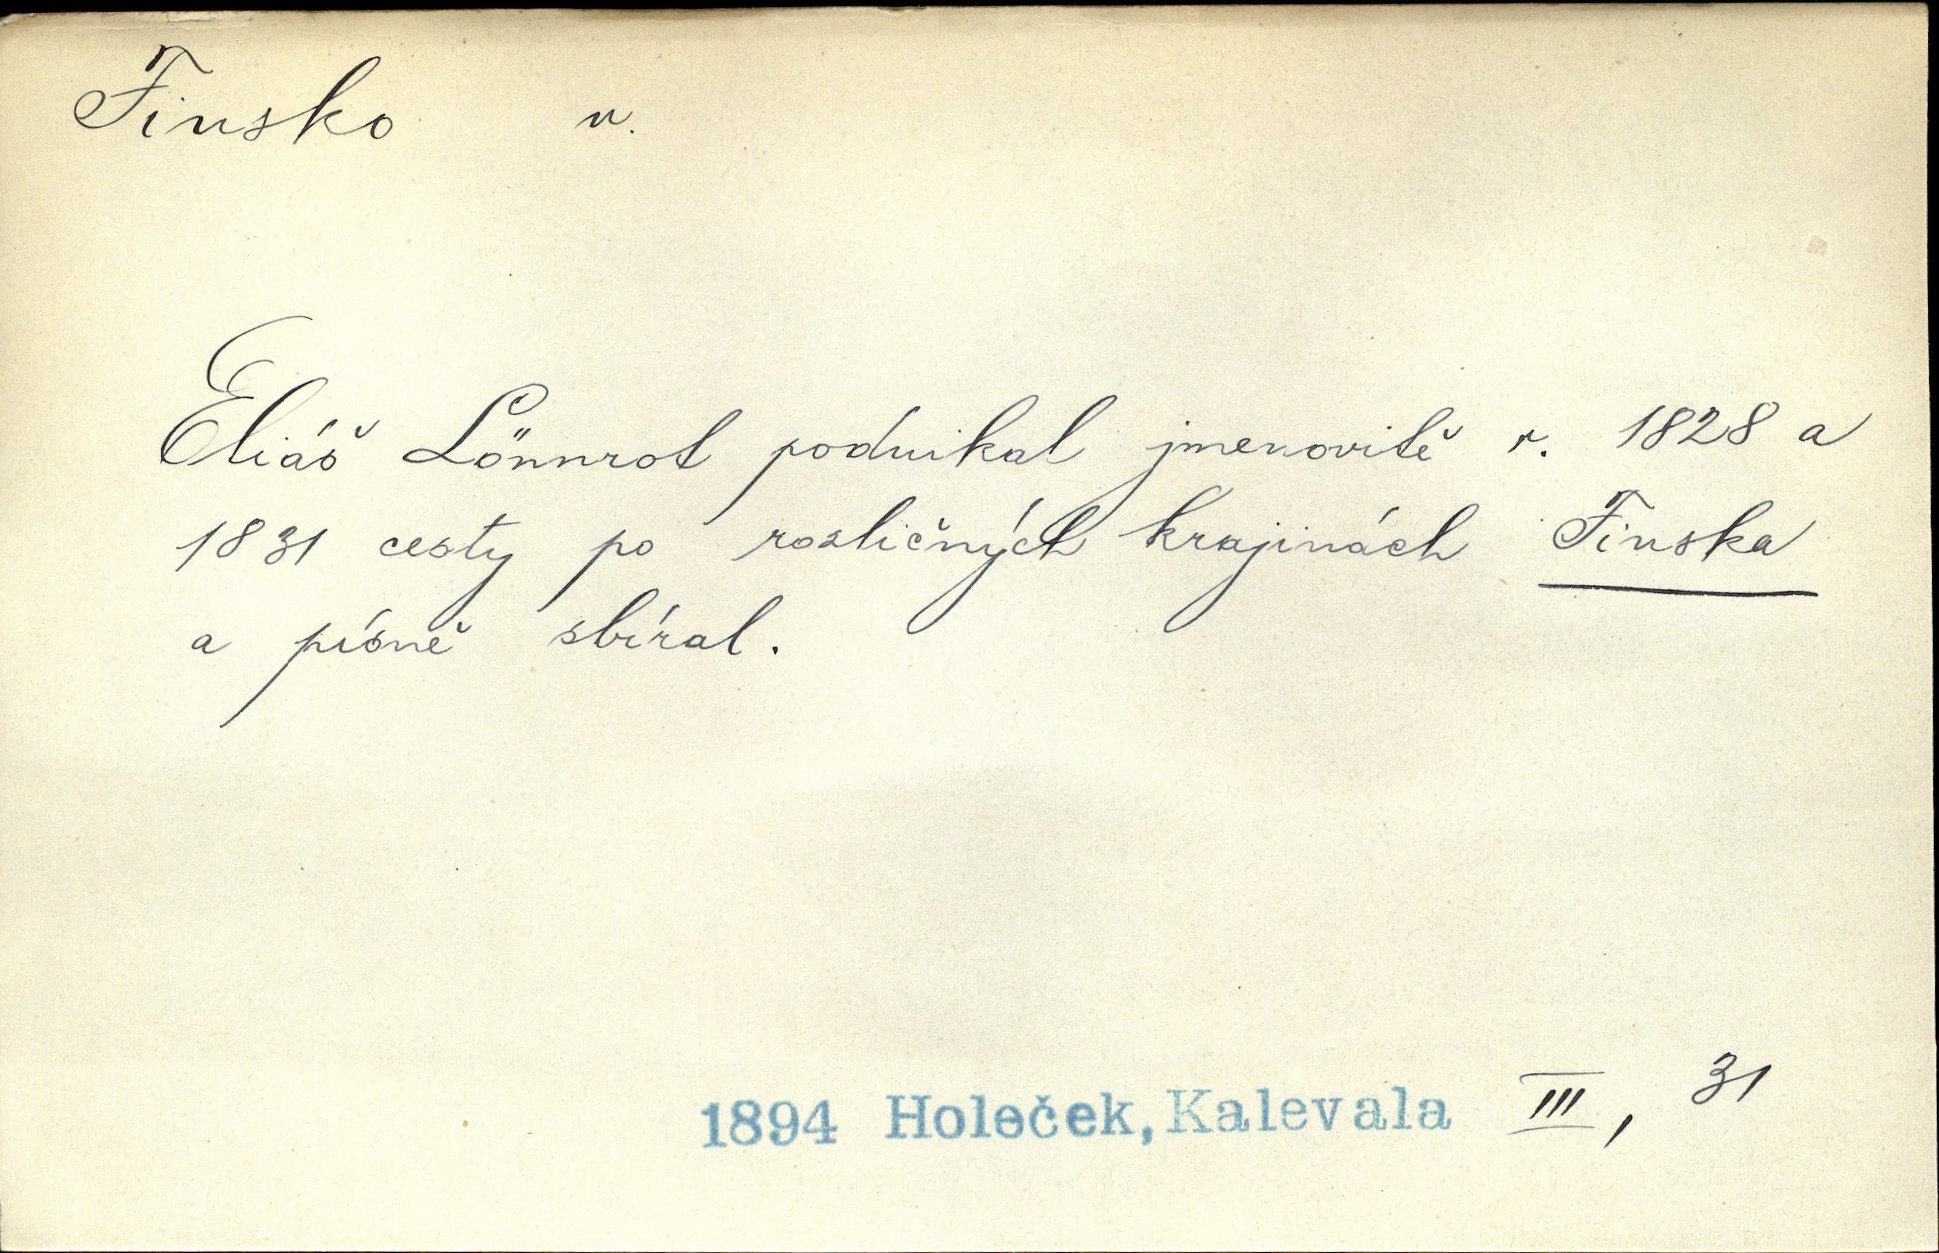 Finsko n.
Eliáš Lönnrot podnikal jmenovitě r. 1828 a
1831 cesty po rozličných krajinách Finska
a písně sbíral.
1894 Holeček, Kalevala III, 31